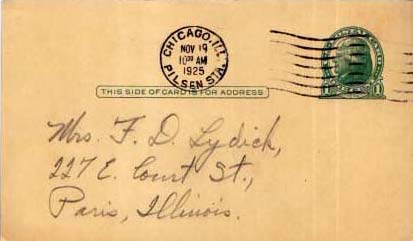 CHICAGO, ILL.
NOV 19
10 30 AM
1925
PILSEN STA.
POSTAL CARD
1 1
THIS SIDE OF CARD IS FOR ADDRESS
Mrs. F. D. Lydick,
227 E. Court St.,
Paris, Illinois.